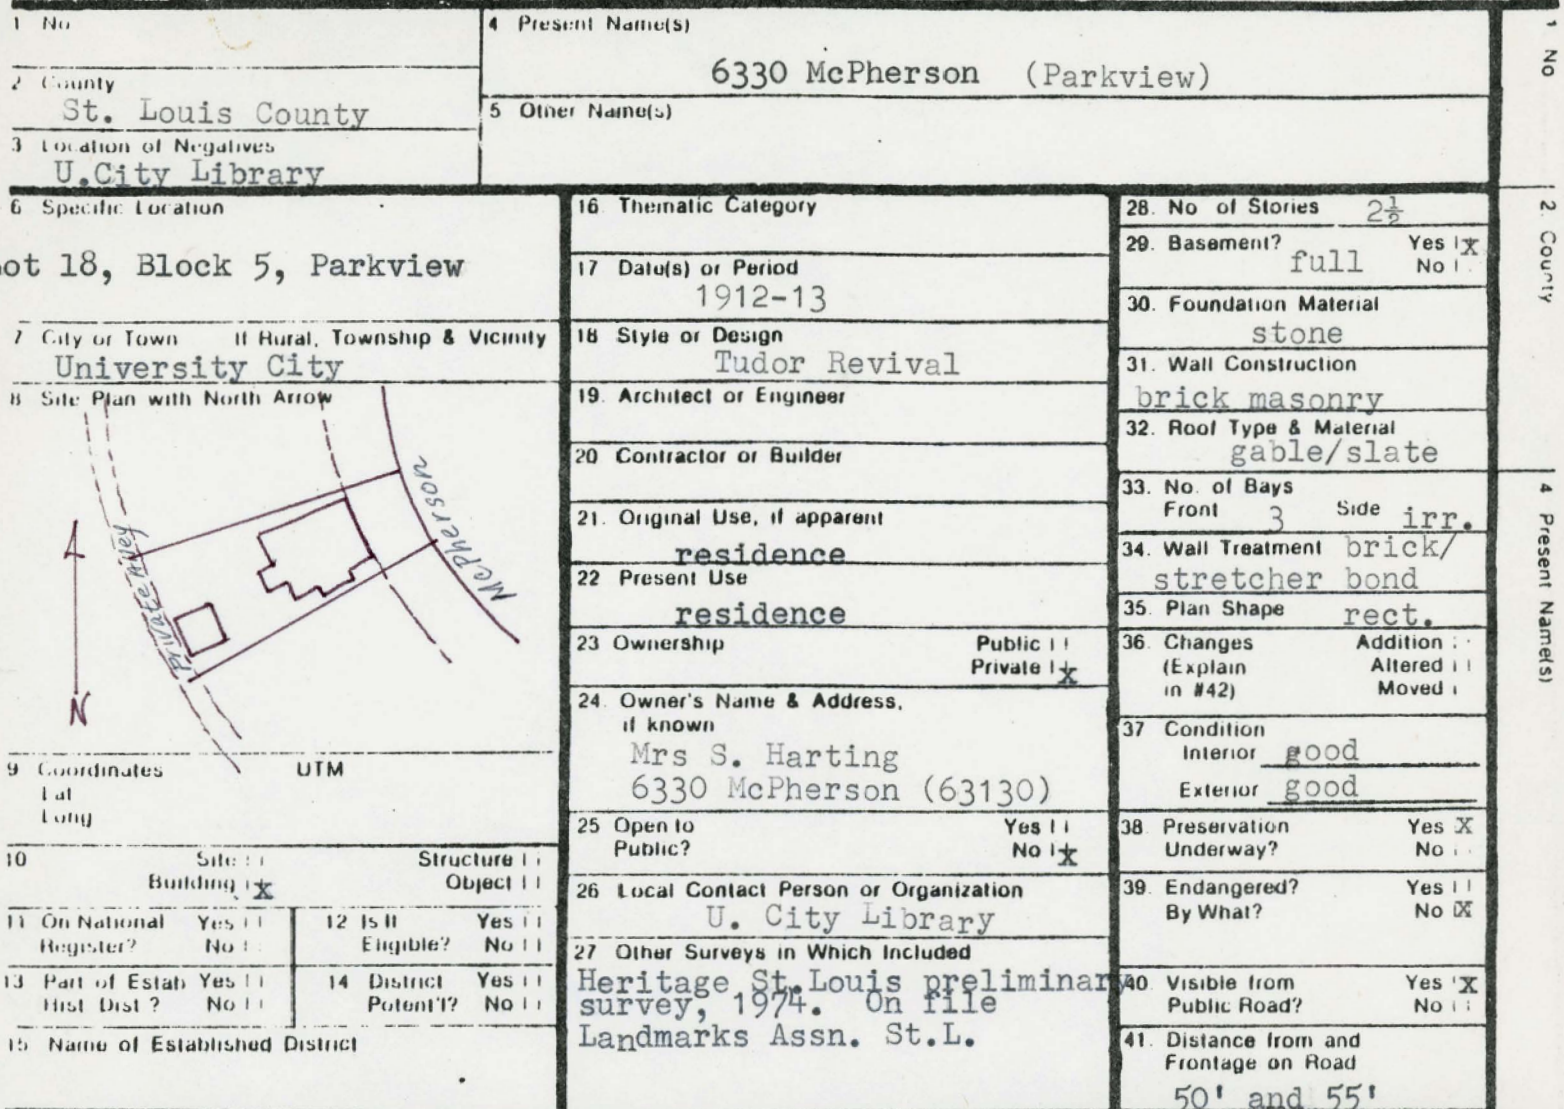 1 No
2 County
St. Louis County
3 Location of Negatives
U.City Library
4 Present Name(s)
6330 McPherson (Parkview)
5 Other Name(s)
6 Specific Location
ot 18, Block 5, Parkview
7 City or Town If Rural, Township & Vicinity
University City
8 Site Plan with North Arrow
Private Alley
McPherson
N
9 Coordinates UTM
Lat
Long
10 Site Structure
Building x Object
11 On National Yes
Register? No
12 Is It Yes
Eligible? No
13 Part of Estab Yes
Hist Dist? No
14 District Yes
Potent'l? No
15 Name of Established District
16. Thematic Category
17 Date(s) or Period
1912-13
18 Style or Design
Tudor Revival
19. Architect or Engineer
20 Contractor or Builder
21. Original Use, if apparent
residence
22 Present Use
residence
23 Ownership Public
Private x
24. Owner's Name & Address,
if known
Mrs S. Harting
6330 McPherson (63130)
25 Open to Yes
Public? No x
26 Local Contact Person or Organization
U. City Library
27 Other Surveys in Which Included
Heritage St.Louis preliminary
survey, 1974. On file
Landmarks Assn. St.L.
28. No of Stories 2½
29. Basement? Yes x
full No
30. Foundation Material
stone
31. Wall Construction
brick masonry
32. Roof Type & Material
gable/slate
33. No. of Bays
Front 3 Side irr.
34. Wall Treatment brick/
stretcher bond
35. Plan Shape rect.
36. Changes Addition
(Explain Altered
in #42) Moved
37 Condition
Interior good
Exterior good
38. Preservation Yes X
Underway? No
39. Endangered? Yes
By What? No X
40. Visible from Yes X
Public Road? No
41. Distance from and
Frontage on Road
50' and 55'
1 No
2. County
4 Present Name(s)